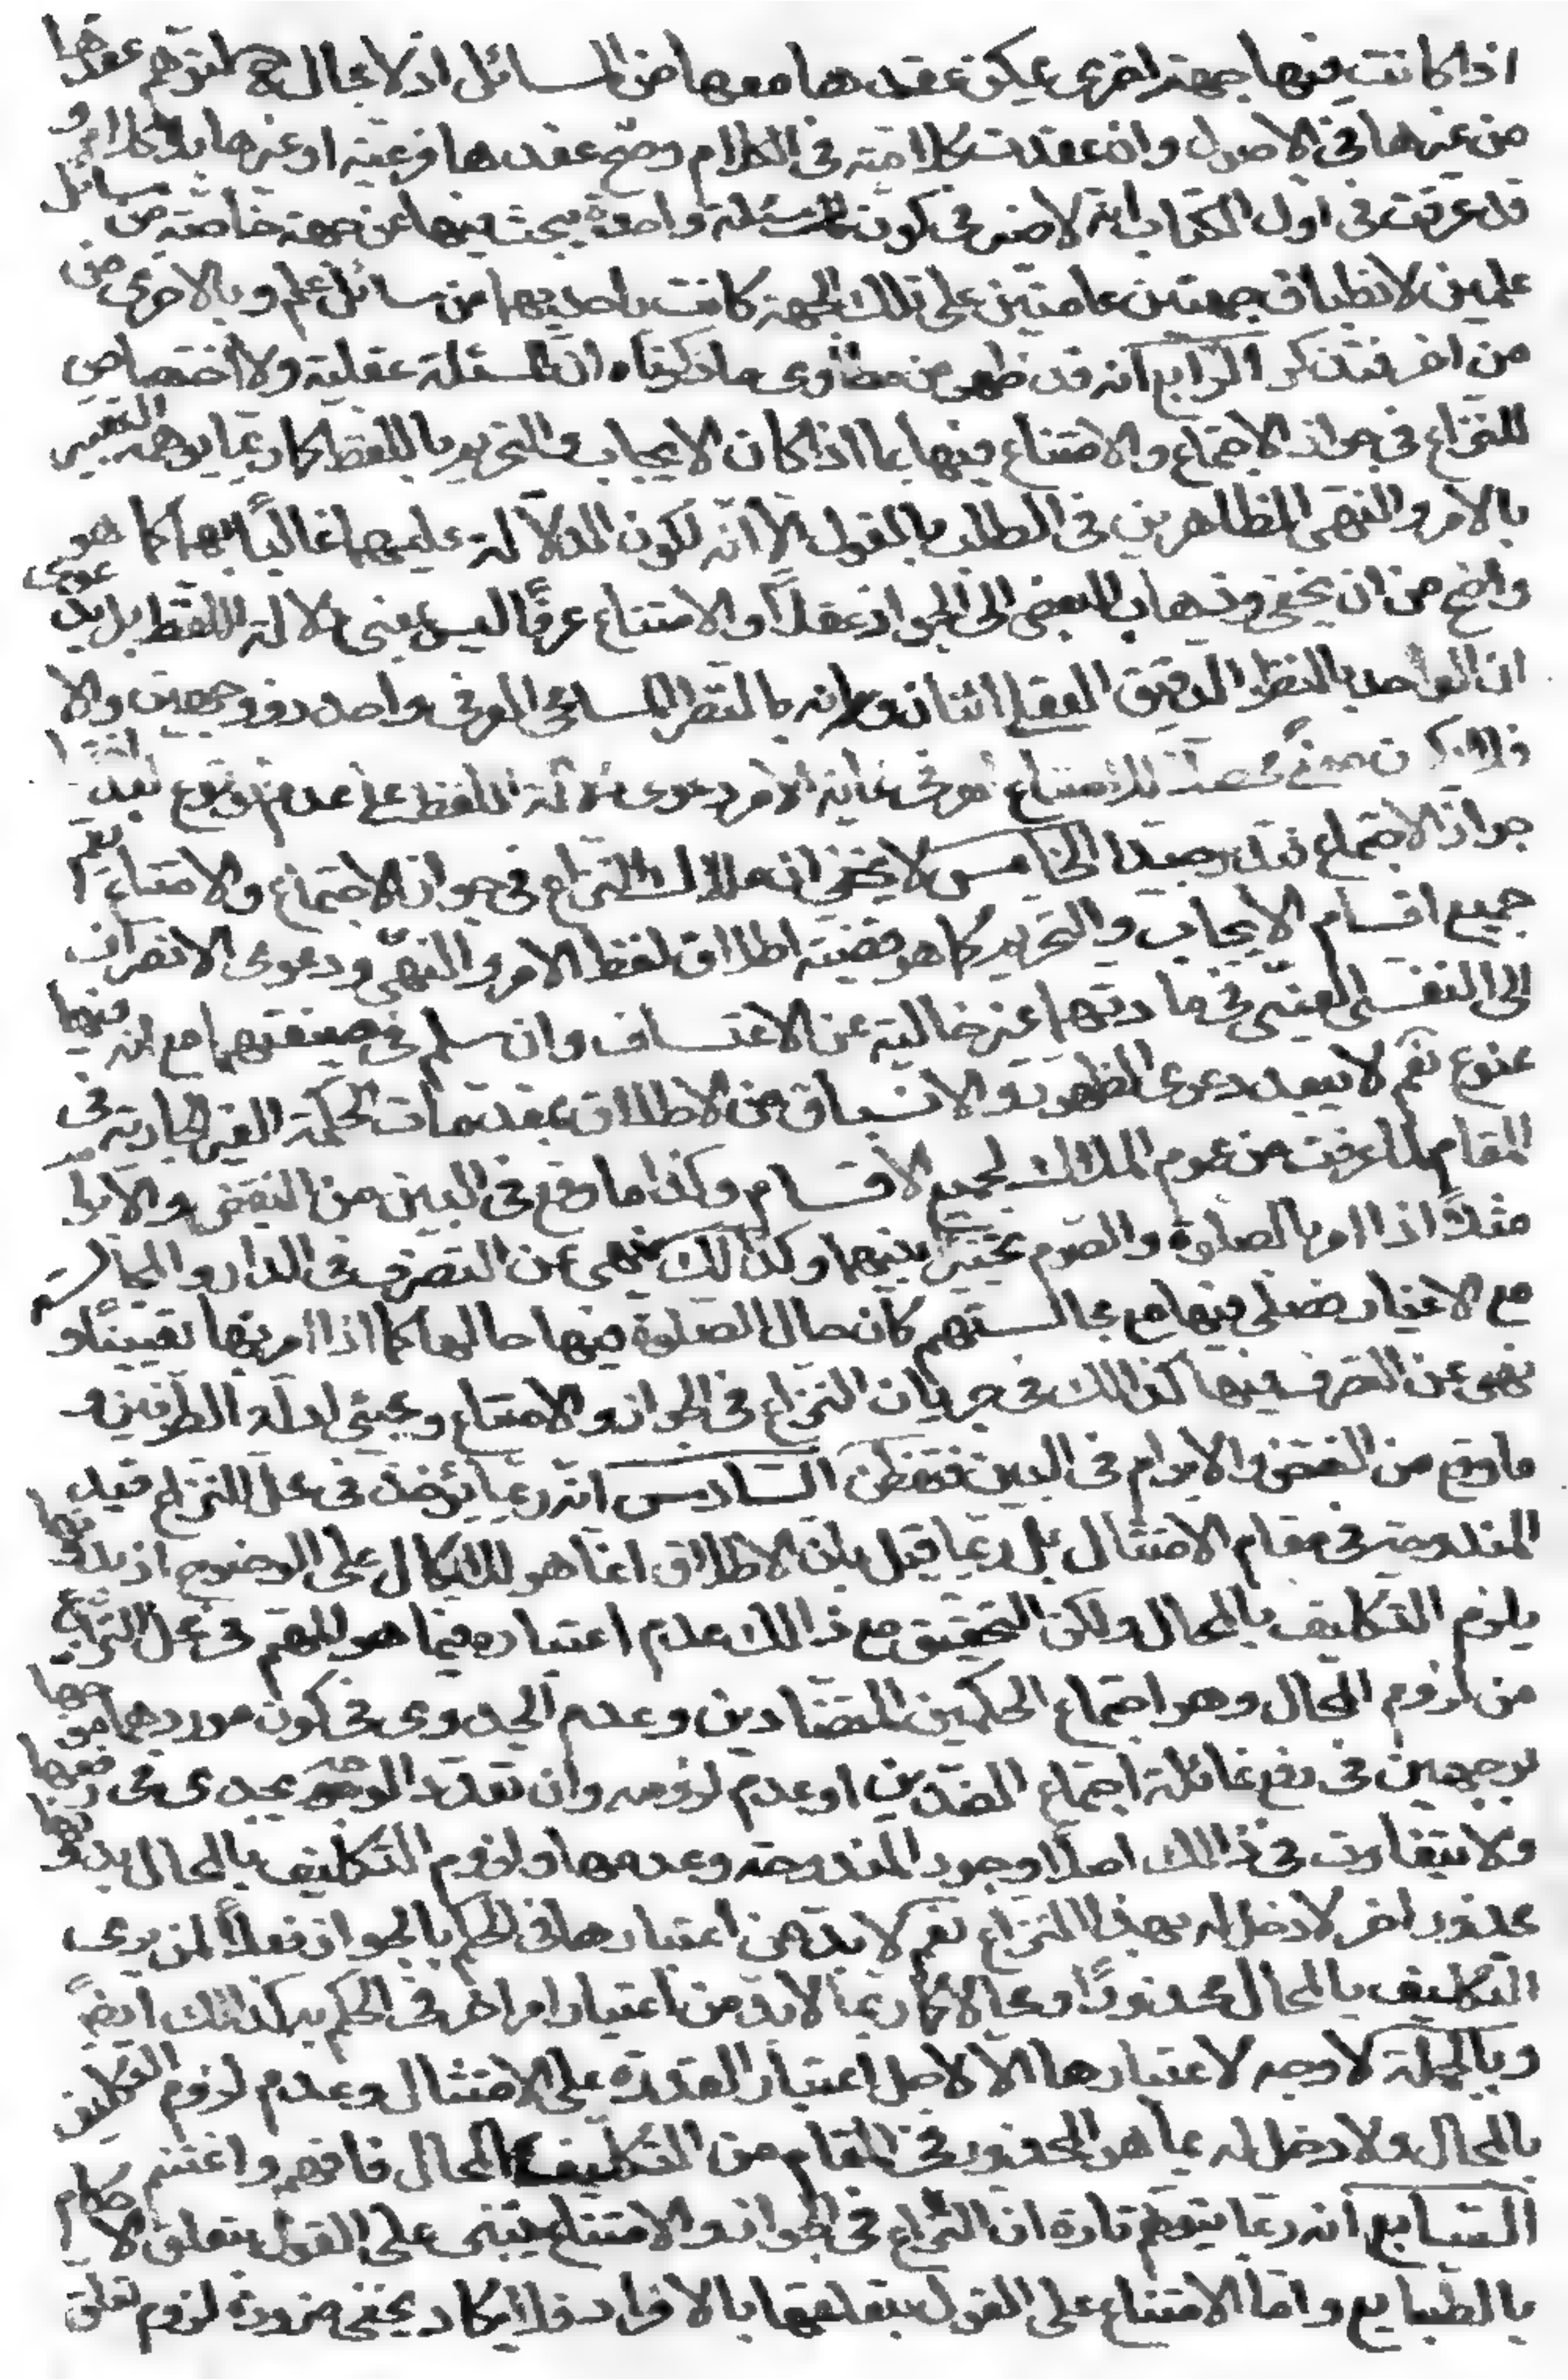 اذا كانت فيها جهة اخرى يمكن عقدها معها من المسائل اذ لا مجال ح لتوهم عقدها
من غيرها فى الاصول وان عقدت كلامية فى الكلام وصح عقدها فرعية او غيرها بلا كلام و
قد عرفت فى اول الكتاب انه لا ضير فى كون المسئلة واحدة يبحث فيها عن جهة خاصة من مسائل
علمين لانطباق جهتين عامتين على تلك الجهة كانت باحديهما من مسائل علم وبالاخرى من
من اخر فتذكر الرّابع انه قد ظهر من مطاوى ما ذكرناه ان المسئلة عقلية ولا اختصاص
للنزاع فى جواز الاجتماع والامتناع فيها بما اذا كان الايجاب والتحريم باللفظ كما ربما يوهمه التعبير
بالامر والنهى الظاهرين فى الطلب بالقول الا انه لكون الدلالة عليهما غالبًا بهما كما هو
واضح من ان يخفى وذهاب البعض الى الجواز عقلًا والامتناع عرفًا ليس بمعنى دلالة اللفظ بل بدعوى
ان الواحد بالنظر الدقيق العقلى اثنان وانه بالنظر المسامحى العرفى واحد ذو وجهين والا
فلا يكون معنى محصلًا للامتناع العرفى غاية الامر دعوى دلالة اللفظ على عدم الوقوع بعد اختيار
جواز الاجتماع فتدبر جيدا الخامس لا يخفى ان ملاك النزاع فى جواز الاجتماع والامتناع يعم
جميع اقسام الايجاب والتحريم كما هو قضية اطلاق لفظ الامر والنهى ودعوى الانصراف
الى النفسى العينى فى مادتهما غير خالية عن الاعتساف وان سلم فى صيغتهما مع انه فيها
ممنوع نعم لا يبعد دعوى الظهور والانسباق من الاطلاق بمقدمات الحكمة الغير الجارية فى
المقام لما عرفت من عموم الملاك لجميع الاقسام وكذا ما وقع فى البين من النقض والابرام
مثلًا اذا امر بالصلوة والصوم تخييرًا بينهما وكذلك نهى عن التصرف فى الدار والمجالسة
مع الاغيار فصلى فيها مع مجالستهم كان حال الصلوة فيها حالها كما اذا امر بها تعيينًا و
نهى عن التصرف فيها كذالك فى جريان النزاع فى الجواز والامتناع ومجيئ ادلة الطرفين و
ما وقع من النقض والابرام فى البين فتفطن السّادس انه ربما يؤخذ فى محل النزاع قيد
المندوحة فى مقام الامتثال بل ربما قيل بان الاطلاق انما هو للاتكال على الوضوح اذ بدونها
يلزم التكليف بالمحال ولكن التحقيق مع ذالك عدم اعتباره فيما هو المهم فى محل النزاع
من لزوم المحال وهو اجتماع الحكمين المتضادين وعدم الجدوى فى كون موردهما موجها
بوجهين فى دفع غائلة اجتماع الضدين او عدم لزومه وان تعدد الوجه يجدى فى رفعها
ولا يتفاوت فى ذالك اصلًا وجود المندوحة وعدمها ولزوم التكليف بالمحال بدونها
محذور اخر لا دخل له بهذا النزاع نعم لا بد من اعتبارها فى الحكم بالجواز فعلًا لمن يرى
التكليف بالمحال محذورًا ومحالا كما ربما لابد من اعتبار امر اخر فى الحكم به كذالك ايضًا
وبالجملة لا وجه لاعتبارها الا لاجل اعتبار القدرة على الامتثال وعدم لزوم التكليف
بالمحال ولا دخل له بما هو المحذور فى المقام من التكليف المحال فافهم واغتنم
السّابع انه ربما يتوهم تارة ان النزاع فى الجواز والامتناع يبتنى على القول بتعلق الاحكام
بالطبايع واما الامتناع على القول بتعلقها بالافراد فلا يكاد يخفى ضرورة لزوم تعلق